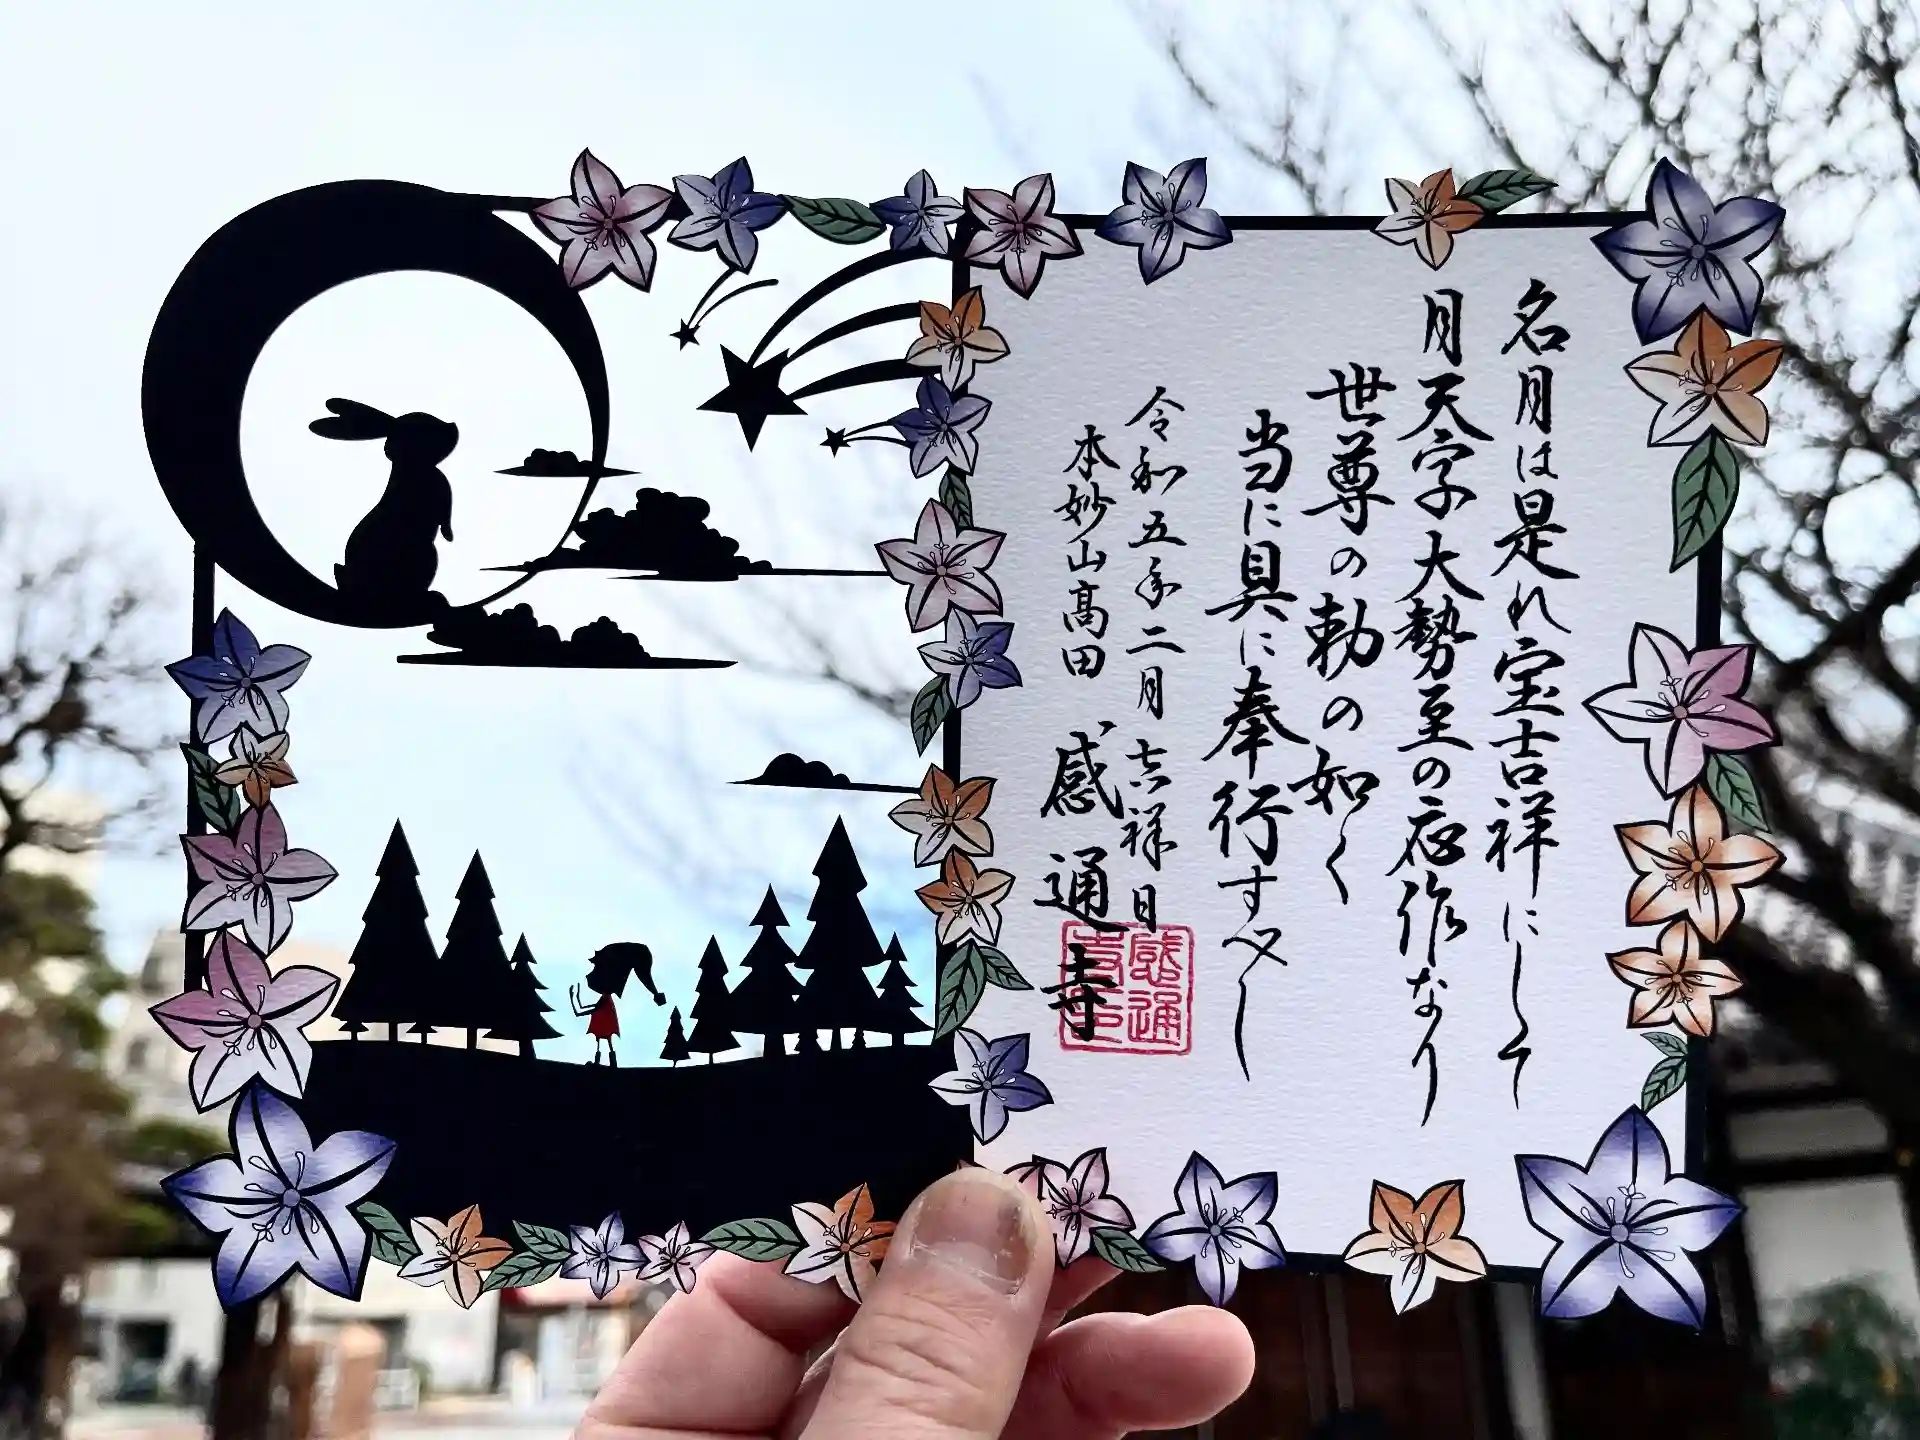 名月は是れ宝吉祥にして
月天子大勢至の応作なり
世尊の勅の如く
当に具に奉行すべし
令和五年二月吉祥日
本妙山高田 感通寺
感通寺印